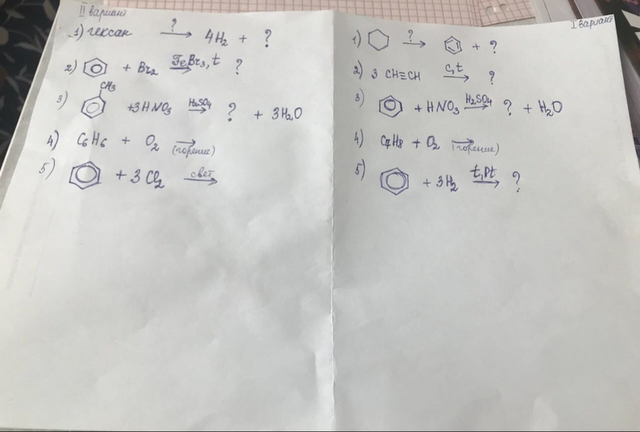 II вариант
1) гексан ? → 4H₂ + ?
2) + Br₂ FeBr₃, t → ?
CH₃
3) + 3HNO₃ H₂SO₄ → ? + 3H₂O
4) C₆H₆ + O₂ → (горение)
5) + 3Cl₂ свет →
I вариант
1) ? → + ?
2) 3 CH≡CH C, t → ?
3) + HNO₃ H₂SO₄ → ? + H₂O
4) C₇H₈ + O₂ → (горение)
5) + 3H₂ t, Pt → ?